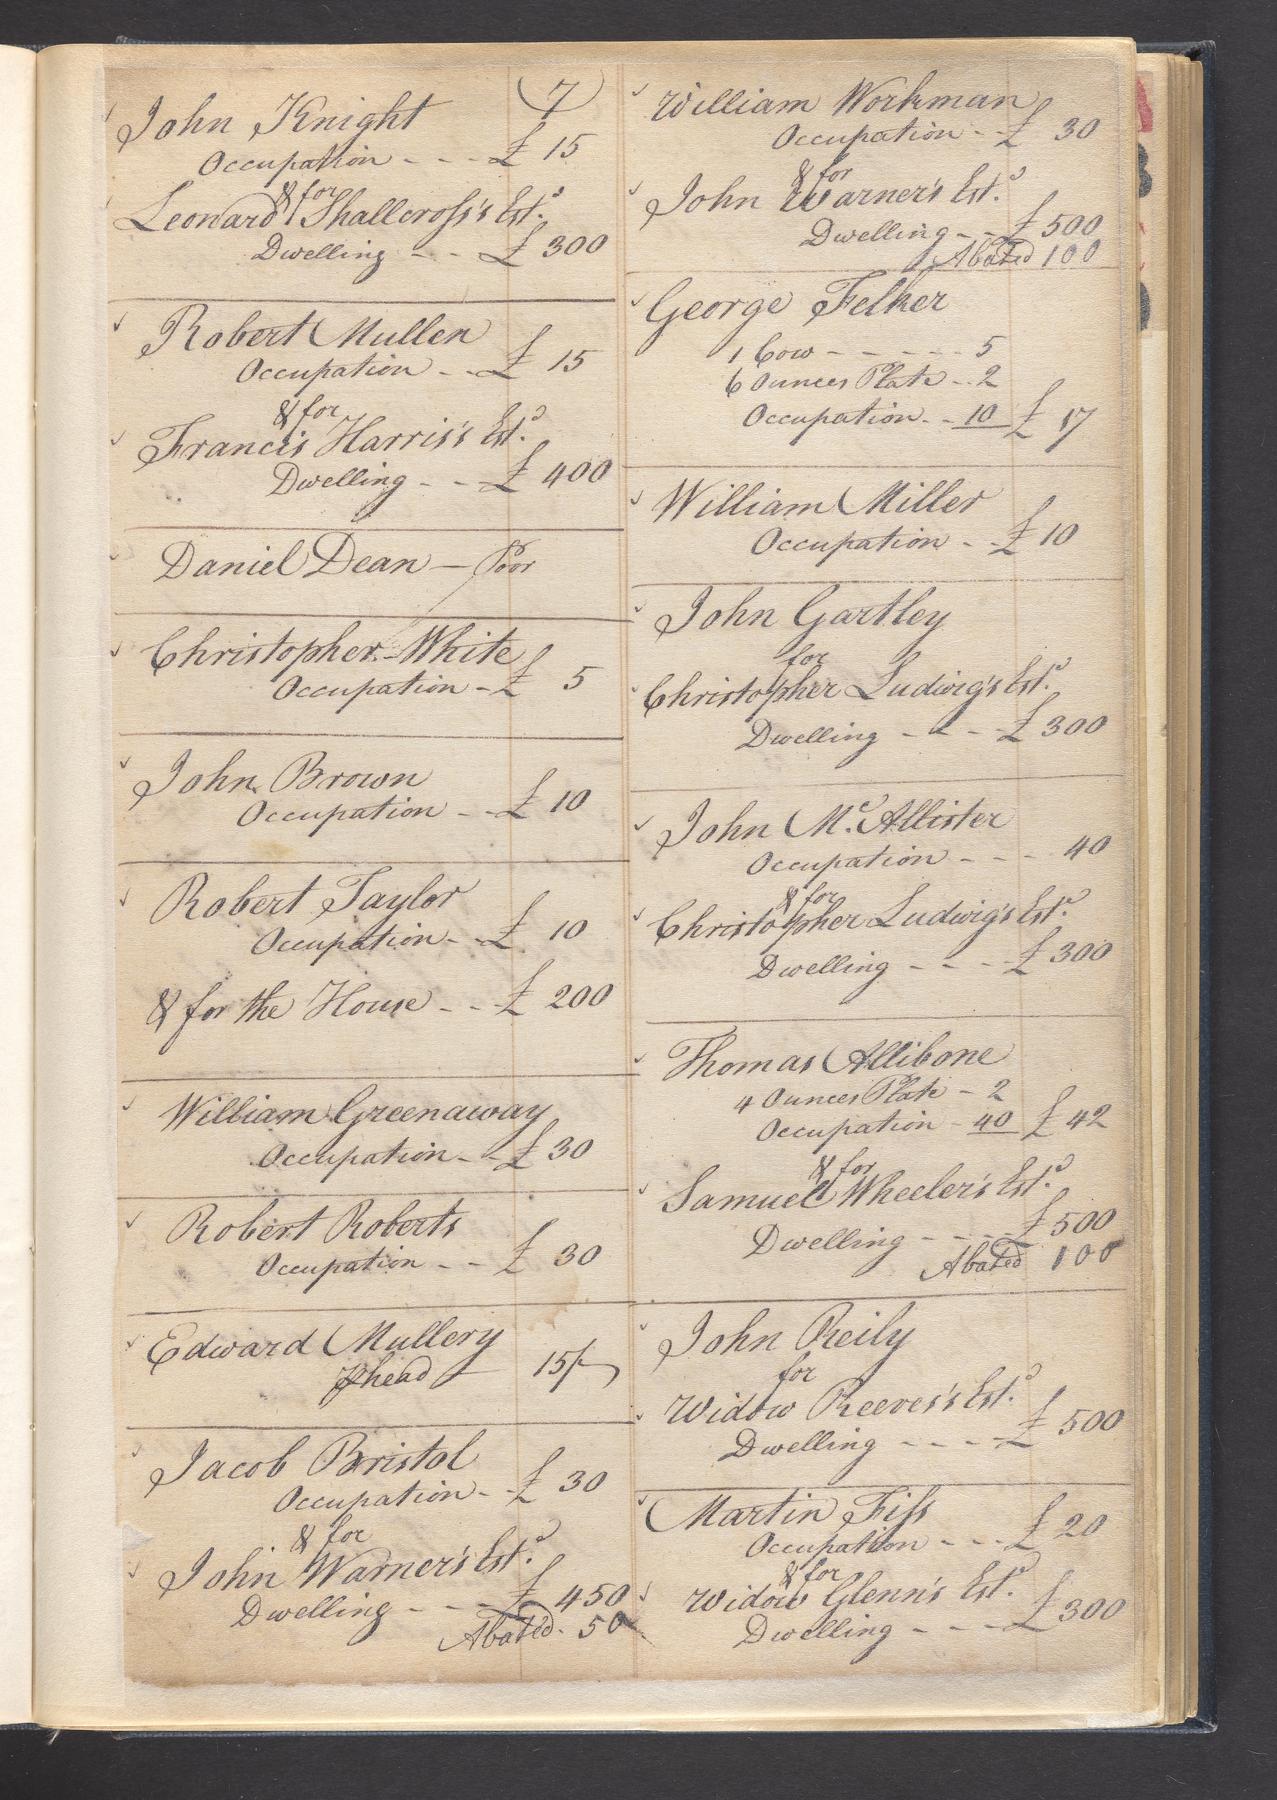 7
John Knight
Occupation - - - £ 15
& for
Leonard Shallcross's Est.d
Dwelling - - - £ 300
Robert Mullen
Occupation - - £ 15
& for
Francis Harris's Est.d
Dwelling - - £ 400
Daniel Dean — Poor
Christopher White
Occupation - £ 5
John Brown
Occupation - - £ 10
Robert Taylor
Occupation - - £ 10
& for the House - - £ 200
William Greenaway
Occupation - - £ 30
Robert Roberts
Occupation - - £ 30
Edward Mullery
P head — 15/-
Jacob Bristol
Occupation - - £ 30
& for
John Warner's Est.d
Dwelling - - - £ 450
Abated - 50
William Workman
Occupation - - £ 30
& for
John Warner's Est.d
Dwelling - - £ 500
Abated 100
George Felker
1 Cow - - - - - - 5
6 Ounces Plate - - 2
Occupation - - 10 £ 17
William Miller
Occupation - - £ 10
John Gartley
for
Christopher Ludwig's Est.d
Dwelling - - - - £ 300
John Mc. Allister
Occupation - - - 40
& for
Christopher Ludwig's Est.d
Dwelling - - - - £ 300
Thomas Allibone
4 Ounces Plate - 2
Occupation - 40 £ 42
& for
Samuel Wheeler's Est.d
Dwelling - - - - £ 500
Abated 100
John Reily
for
Widow Reeves's Est.d
Dwelling - - - - £ 500
Martin Fiss
Occupation - - - £ 20
& for
Widow Glenn's Est.d
Dwelling - - - £ 300